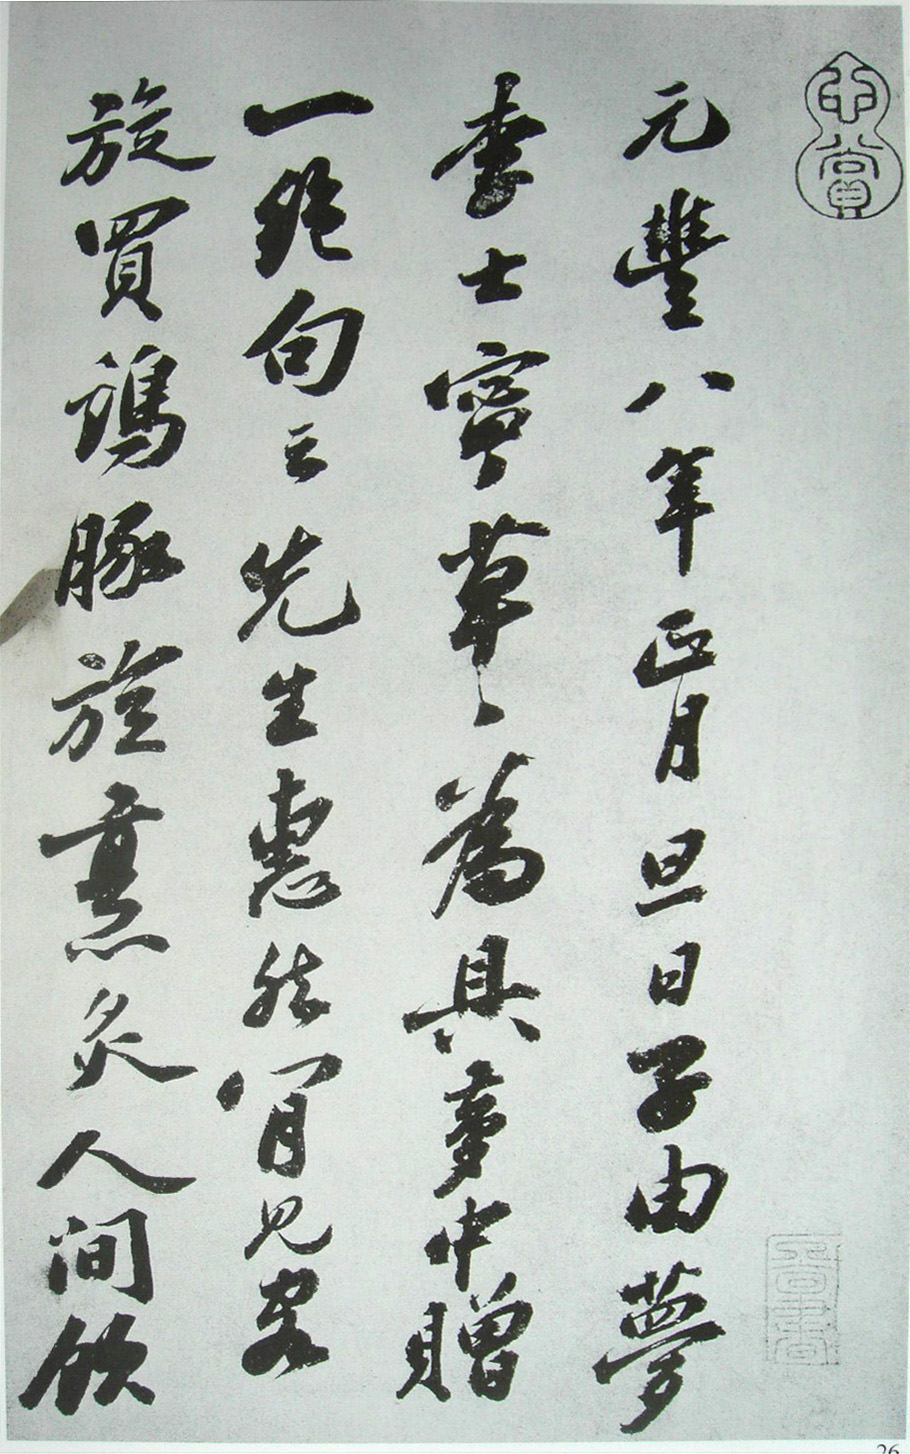 元豐八年正月旦日子由夢
李士寧草々為具夢中贈
一絕句云先生惠然肯見客
旋買鷄豚旋烹炙人間飲
26